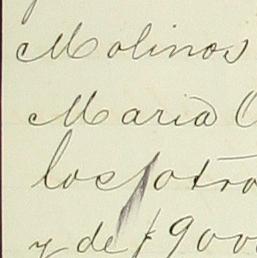 Molinos
Maria
los otro
y de $ 900